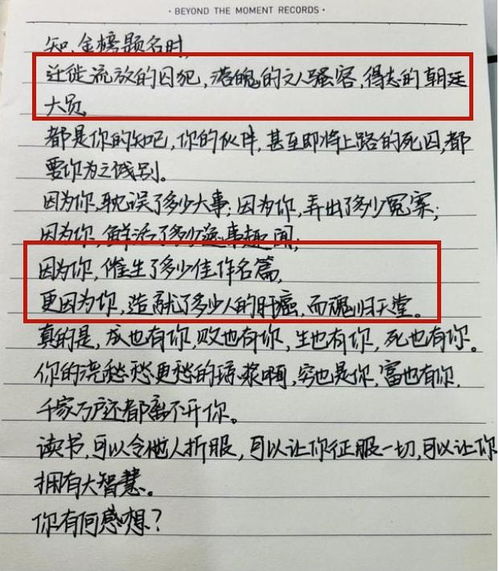 · BEYOND THE MOMENT RECORDS ·
知,金榜题名时,
迁徙流放的囚犯,落魄的文人骚客,得志的朝廷
大员。
都是你的知己,你的伙伴,甚至即将上路的死囚,都
要你为之饯别。
因为你,耽误了多少大事;因为你,弄出了多少冤案;
因为你,鲜活了多少逸事趣闻;
因为你,催生了多少佳作名篇,
更因为你,造就了多少人的肝癌,而魂归天堂。
真的是,成也有你,败也有你,生也有你,死也有你。
你的浇愁愁更愁的琼浆啊,穷也是你,富也有你,
千家万户还都离不开你。
读书,可以令他人折服,可以让你征服一切,可以让你
拥有大智慧。
你有何感想?